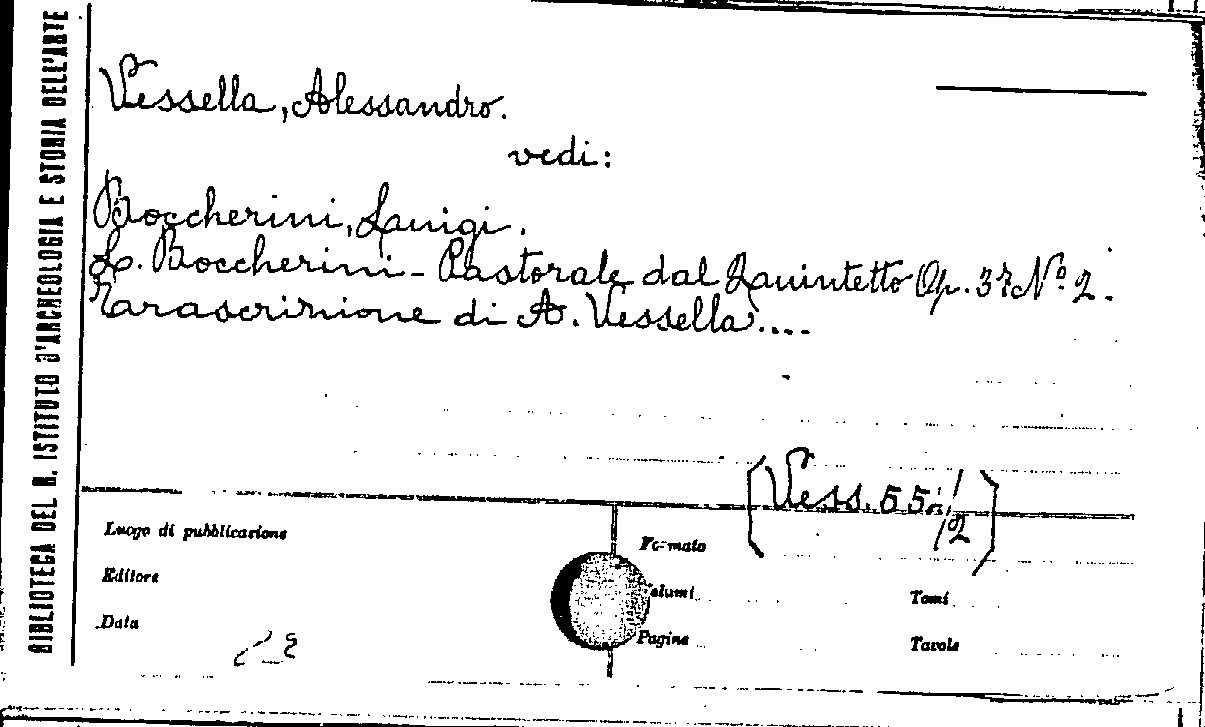 BIBLIOTECA DEL R. ISTITUTO D'ARCHEOLOGIA E STORIA DELL'ARTE
Vessella, Alessandro.
vedi:
Boccherini, Luigi.
L. Boccherini - Pastorale dal Quintetto Op. 37 Nº 2.
Trascrizione di A. Vessella....
(Vess. 55 1/2)
Luogo di pubblicazione
Formato
Editore
Volumi
Tomi
Data
Pagine
Tavole